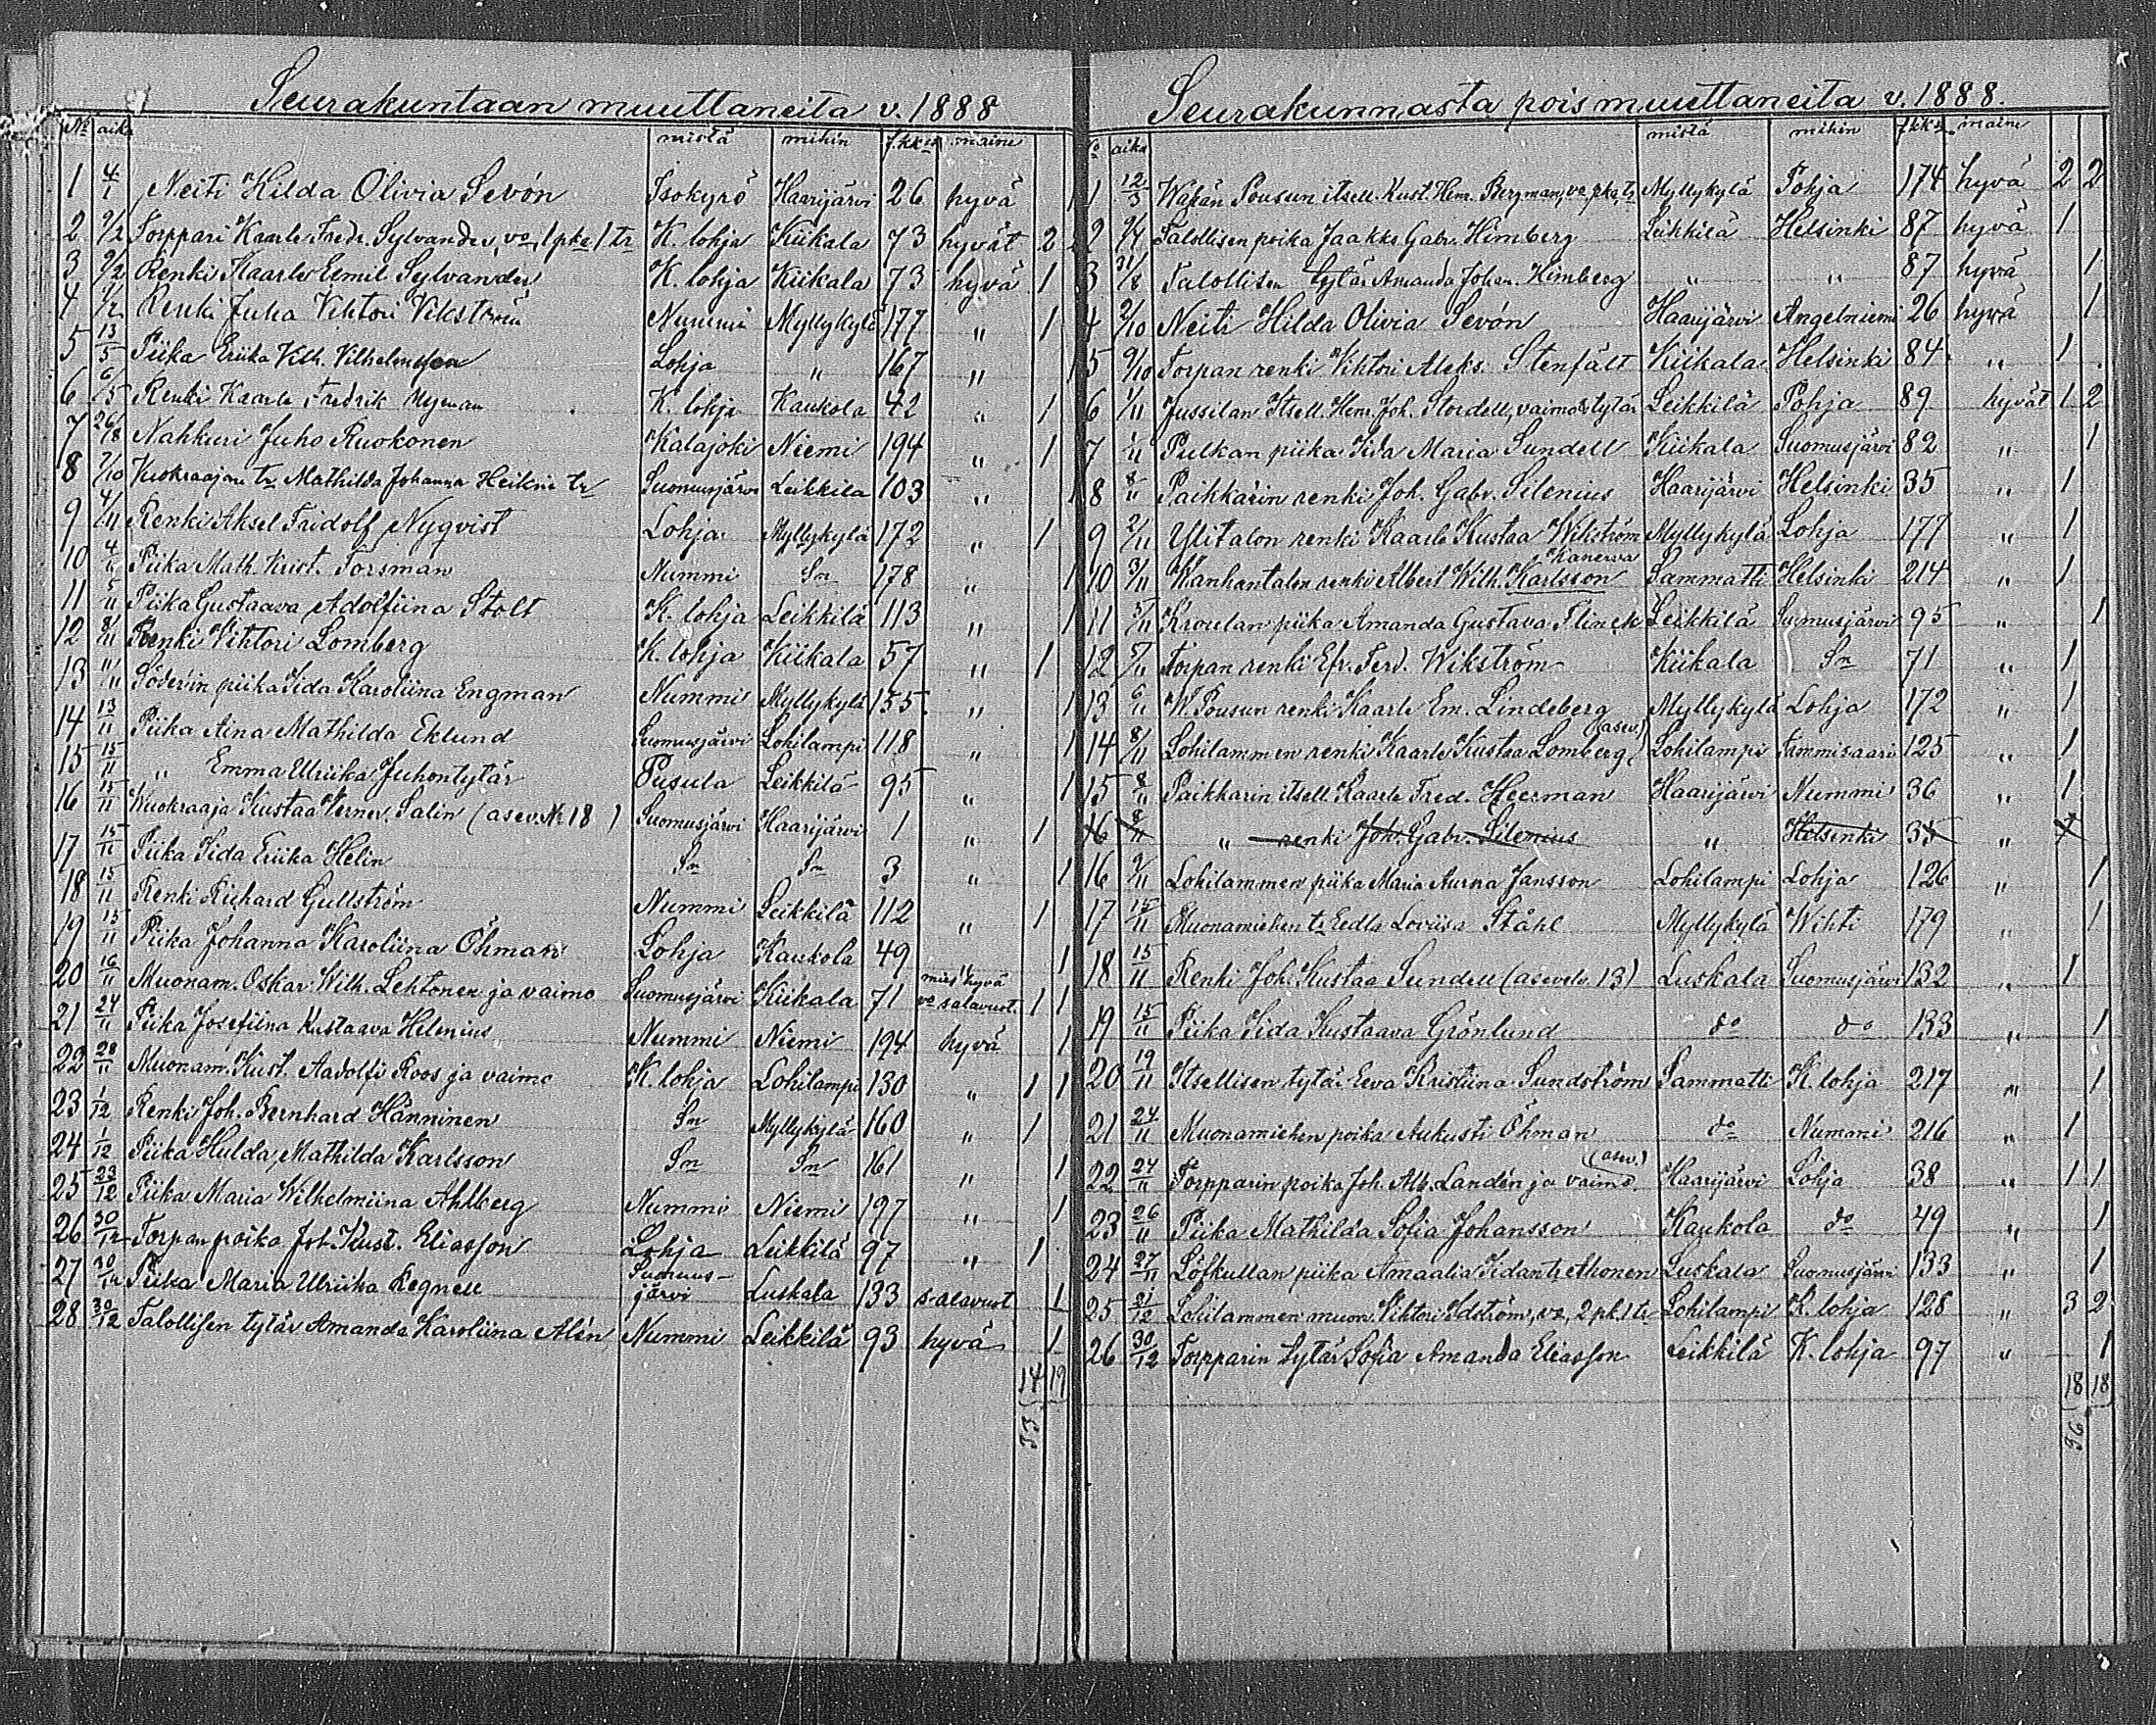 Seurakuntaan muuttaneita v. 1888
No aika mistä mihin s.kk:s maine
1 4/1 Neiti Hilda Olivia Sevón Isokyrö Haarijärvi 26 hyvä 1
2 9/2 Torppari Kaarle Fredr. Sylvander, vo, 1 pka 1 tr K. lohja Kiikala 73 hyvät 2 2
3 9/2 Renki Kaarle Eemil Sylvander K. lohja Kiikala 73 hyvä 1
4 Renki Juha Vihtori Vikström Nummi Myllykylä 177 " 1
5 13/5 Piika Eriika Vilh. Vilhelmsson Lohja " 167 " 1
6 Renki Kaarle Fredrik Nyman K. lohja Kaukola 42 " 1
7 26/8 Nahkuri Juho Ruokonen Kalajoki Niemi 194 " 1
8 7/10 Wuokraajan tr Mathilda Johanna Heikin tr Suomusjärvi Leikkilä 103 " 1
9 4/11 Renki Aksel Fridolf Nyqvist Lohja Myllykylä 172 " 1
10 4/11 Piika Math. Krist. Forsman Nummi Sn 178 " 1
11 5/11 Piika Gustaava Adolfiina Stolt K. lohja Leikkilä 113 " 1
12 8/11 Renki Vihtori Lomberg K. lohja Kiikala 57 " 1
13 11/11 Söder'in piika Iida Karoliina Engman Nummi Myllykylä 155 " 1
14 13/11 Piika Aina Mathilda Eklund Suomusjärvi Lohilampi 118 " 1
15 15/11 " Emma Ulriika Juhontytär Pusula Leikkilä 95 " 1
16 15/11 Wuokraaja Kustaa Verner Salin (asev. N 18) Suomusjärvi Haarijärvi 1 " 1
17 15/11 Piika Iida Eriika Helin Sn Sn 3 " 1
18 15/11 Renki Richard Gullström Nummi Leikkilä 112 " 1
19 15/11 Piika Johanna Karoliina Öhman Lohja Kaukola 49 " 1
20 16/11 Muonam. Oskar Wilh. Lehtonen ja vaimo Suomusjärvi Kiikala 71 mies hyvä vo salavuot. 1 1
21 24/11 Piika Josefiina Kustaava Helenius Nummi Niemi 194 hyvä 1
22 28/11 Muonam. Kust. Aadolfi Roos ja vaimo K. lohja Lohilampi 130 " 1 1
23 1/12 Renki Joh. Bernhard Hänninen Sn Myllykylä 160 " 1
24 1/12 Piika Hulda Mathilda Karlsson Sn Sn 161 " 1
25 23/12 Piika Maria Wilhelmiina Ahlberg Nummi Niemi 197 " 1
26 30/12 Torpan poika Joh. Kust. Eliasson Lohja Leikkilä 97 " 1
27 30/12 Piika Maria Ulriika Regnell Suomusjärvi Luskala 133 salavuot 1
28 30/12 Talollisen tytär Amanda Karoliina Alén Nummi Leikkilä 93 hyvä 1
14 19
33
Seurakunnasta pois muuttaneita v. 1888.
No aika mistä mihin s.kk:s maine
1 12/3 Wähän Pousun itsell. Kust. Hem. Bergman, vo, pka, tr Myllykylä Pohja 174 hyvä 2 2
2 9/7 Talollisen poika Jaakko Gabr. Himberg Leikkilä Helsinki 87 hyvä 1
3 31/8 Talollisen tytär Amanda Johan. Himberg " " 87 hyvä 1
4 2/10 Neiti Hilda Olivia Sevón Haarijärvi Angelniemi 26 hyvä 1
5 9/10 Torpan renki Vihtori Aleks. Stenfält Kiikala Helsinki 84 " 1
6 1/11 Jussilan Itsell. Hem. Joh. Stordell, vaimo, tytär Leikkilä Pohja 89 hyvät 1 2
7 1/11 Pulkan piika Iida Maria Sundell Kiikala Suomusjärvi 82 " 1
8 8/11 Paikkarin renki Joh. Gabr. Silenius Haarijärvi Helsinki 35 " 1
9 2/11 Ylitalon renki Kaarle Kustaa Wikström Myllykylä Lohja 177 " 1
10 3/11 Wanhantalon renki Albert Wilh. Karlsson Kanerva Sammatti Helsinki 214 " 1
11 5/11 Kroulan piika Amanda Gustava Flinck Leikkilä Suomusjärvi 95 " 1
12 5/11 Torpan renki Efr. Ferd. Wikström Kiikala Sn 71 " 1
13 6/11 W. Pousun renki Kaarle Em. Lindeberg Myllykylä Lohja 172 " 1
14 8/11 Lohilammen renki Kaarle Kustaa Lomberg (asev.) Lohilampi Tammisaari 125 " 1
15 8/11 Paikkarin itsell. Kaarle Fred. Heerman Haarijärvi Nummi 36 " 1
16 8/11 " renki Joh. Gabr. Silenius " Helsinki 35 " 1
16 9/11 Lohilammen piika Maria Aurna Jansson Lohilampi Lohja 126 " 1
17 15/11 Muonamiehen tr Eedla Loviisa Ståhl Myllykylä Wihti 179 " 1
18 15/11 Renki Joh. Kustaa Sundell (asevelv. 13) Luskala Suomusjärvi 132 " 1
19 15/11 Piika Iida Kustaava Grönlund do do 133 " 1
20 19/11 Itsellisen tytär Eeva Kristiina Sundström Sammatti K. lohja 217 " 1
21 24/11 Muonamiehen poika Aukusti Öhman do Nummi 216 " 1
22 24/11 Torpparin poika Joh. Alb. Landén ja vaimo (asev.) Haarijärvi Lohja 38 " 1 1
23 26/11 Piika Mathilda Sofia Johansson Kaukola do 49 " 1
24 27/11 Löfkullan piika Amaalia Iidantr Ahonen Luskala Suomusjärvi 133 " 1
25 21/12 Lohilammen muon. Vihtori Idström, vo, 2 pk. 1 tr Lohilampi K. lohja 128 " 3 2
26 30/12 Torpparin tytär Sofia Amanda Eliasson Leikkilä K. lohja 97 " 1
18 18
36